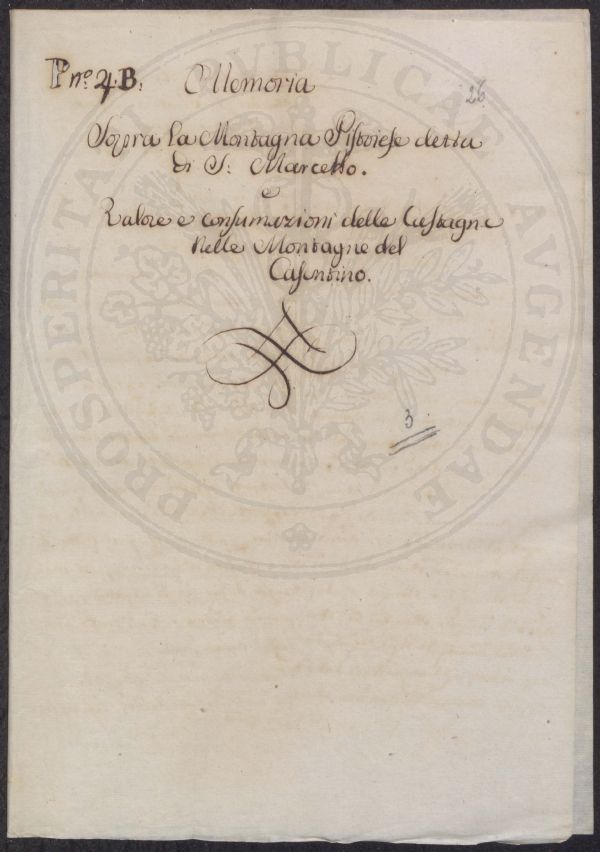 P. nº. 4. B. Memoria 26
Sopra La Montagna Pistoiese detta
di S: Marcello.
e
Valore e consumazioni delle Castagne
Nelle Montagne del
Casentino.
3
PROSPERITATI PUBLICAE AVGENDAE